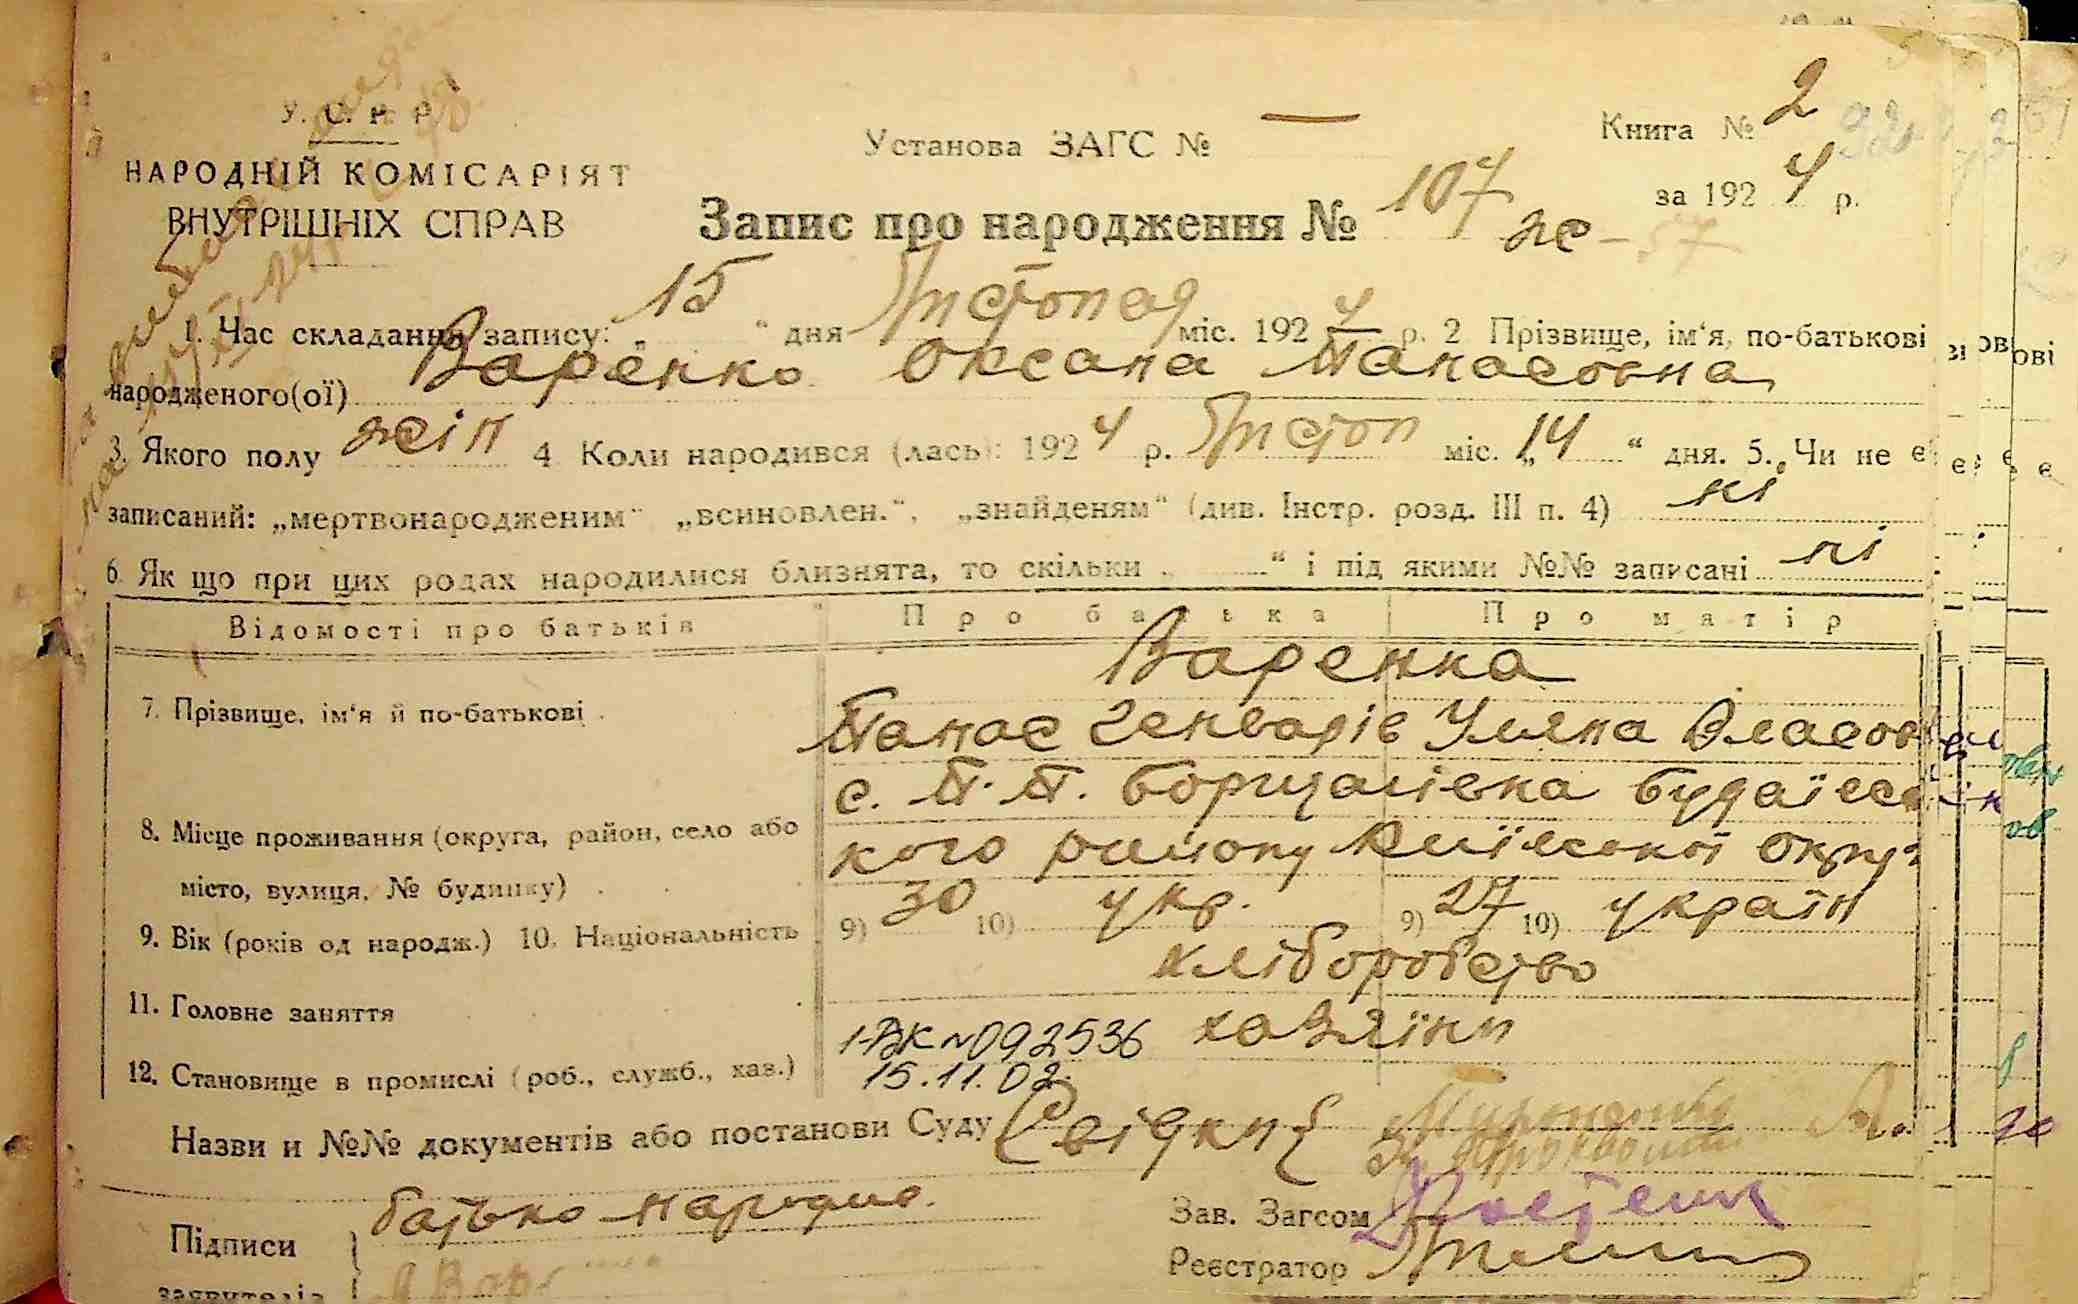 У. С. Р. Р.
НАРОДНІЙ КОМІСАРІЯТ
ВНУТРІШНІХ СПРАВ
Установа ЗАГС № —
Книга № 2
за 1924 р.
Запис про народження № 107 же-57
1. Час складання запису: „15“ дня Листопад міс. 1924 р. 2 Прізвище, ім‘я, по-батькові
народженого(ої) Варенко Оксана Панасовна
3. Якого полу жін 4 Коли народився (лась): 1924 р. Листоп міс. „14“ дня. 5. Чи не є
записаний: „мертвонародженим“ „всиновлен.“, „знайденям“ (див. Інстр. розд. III п. 4) ні
6. Як що при цих родах народилися близнята, то скільки „ “ і під якими №№ записані ні
Відомості про батьків Про батька Про матір
7. Прізвище, ім‘я й по-батькові Варенка
Панас Генварів Уляна Власов
8. Місце проживання (округа, район, село або місто, вулиця, № будинку)
с. П. П. Борщагівка Будаївсь
кого району Київської Округ
9. Вік (років од народж.) 10. Національність 9) 30 10) укр. 9) 27 10) україн
11. Головне заняття хліборобство
12. Становище в промислі (роб., служб., хаз.) хазяїни
1-ВК №092536
15.11.02.
Назви и №№ документів або постанови Суду Свідки
Підписи
заявителів
батько народж.
Зав. Загсом
Реєстратор